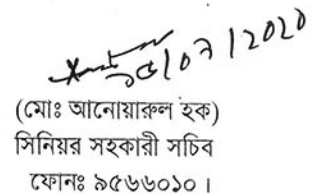 ১৫/০৭/2020
(মোঃ আনোয়ারুল হক)
সিনিয়র সহকারী সচিব
ফোনঃ ৯৫৬৬০১০।